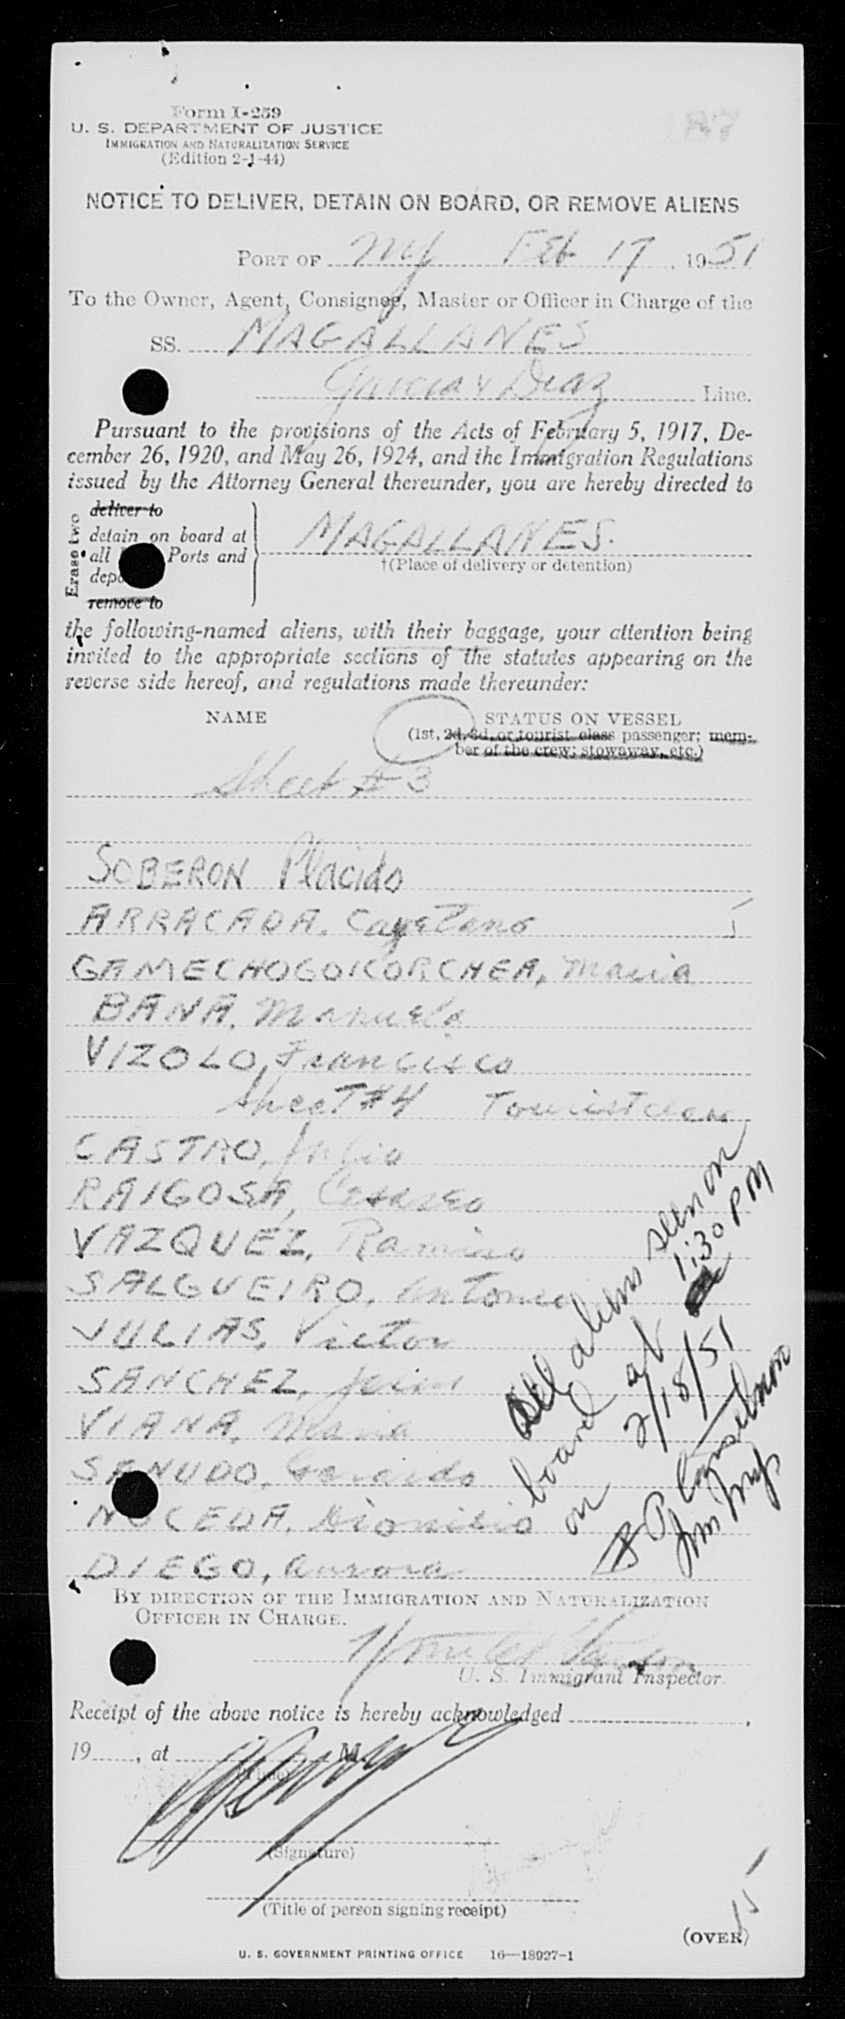 Form I-259
U. S. DEPARTMENT OF JUSTICE
IMMIGRATION AND NATURALIZATION SERVICE
(Edition 2-1-44)
187
NOTICE TO DELIVER, DETAIN ON BOARD, OR REMOVE ALIENS
PORT OF NY Feb 17, 1951
To the Owner, Agent, Consignee, Master or Officer in Charge of the
SS. MAGALLANES
Garcia & Diaz Line.
Pursuant to the provisions of the Acts of February 5, 1917, De-
cember 26, 1920, and May 26, 1924, and the Immigration Regulations
issued by the Attorney General thereunder, you are hereby directed to
Erase two
deliver to
detain on board at
all Ports and
remove to
MAGALLANES.
†(Place of delivery or detention)
the following-named aliens, with their baggage, your attention being
invited to the appropriate sections of the statutes appearing on the
reverse side hereof, and regulations made thereunder:
NAME STATUS ON VESSEL
(1st, 2d, 3d, or tourist class passenger; mem-
ber of the crew; stowaway, etc.)
Sheet # 3
SOBERON Placido
ARRACADA, Cayetano
GAMECHOGOICORCHEA, Maria
BANA, Manuela
VIZOLO, Francisco
Sheet #4 Tourist class
CASTRO, Julio
RAIGOSA, Cesareo
VAZQUEZ, Ramiro
SALGUEIRO, Antonio
JULIAS, Victor
SANCHEZ,
VIANA, Maria
SANUDO, Gerardo
NOCEDA, Dionisio
DIEGO, Aurora
All aliens seen on
board at 1:30 PM
on 2/18/51
Imm Insp
BY DIRECTION OF THE IMMIGRATION AND NATURALIZATION
OFFICER IN CHARGE.
U. S. Immigrant Inspector.
Receipt of the above notice is hereby acknowledged
19 , at M.
(Time)
(Signature)
(Title of person signing receipt)
15
(OVER)
U. S. GOVERNMENT PRINTING OFFICE 16—18927-1